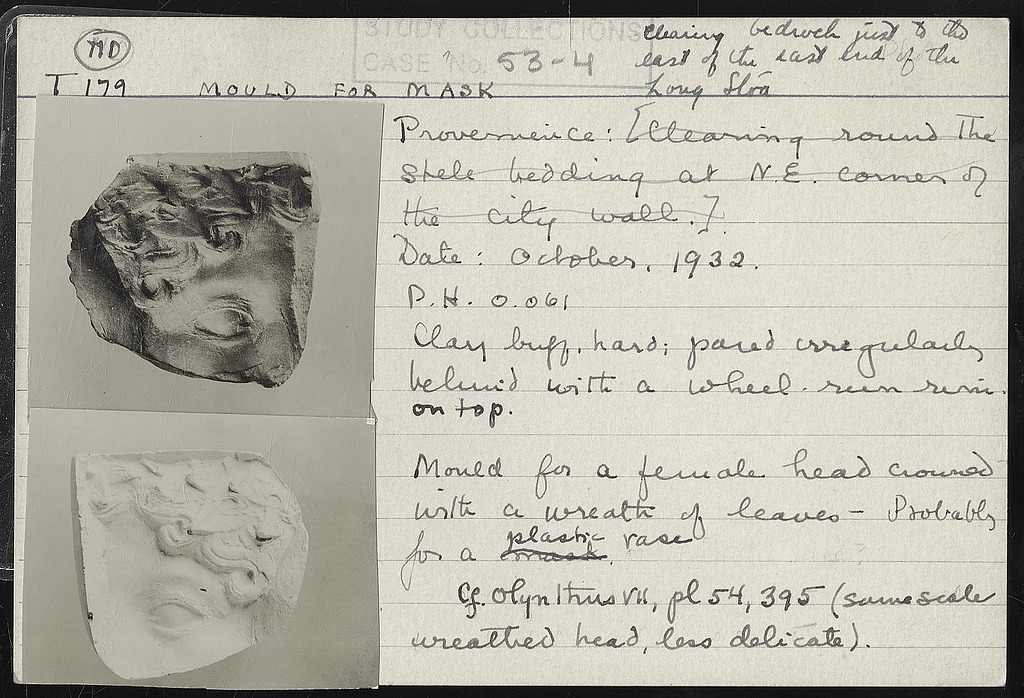 MD
STUDY COLLECTIONS
CASE No. 53-4
clearing bedrock just to the
east of the east end of the
Long Stoa
T 179 MOULD FOR MASK
Provenience: [Clearing round The
stele bedding at N.E. corner of
the city wall.]
Date: October, 1932.
P.H. 0.061
Clay buff, hard; pared irregularly
behind with a wheel-run rim
on top.
Mould for a female head crowned
with a wreath of leaves - Probably
for a mask. plastic vase
Cf. Olynthus VII, pl 54, 395 (same scale
wreathed head, less delicate).